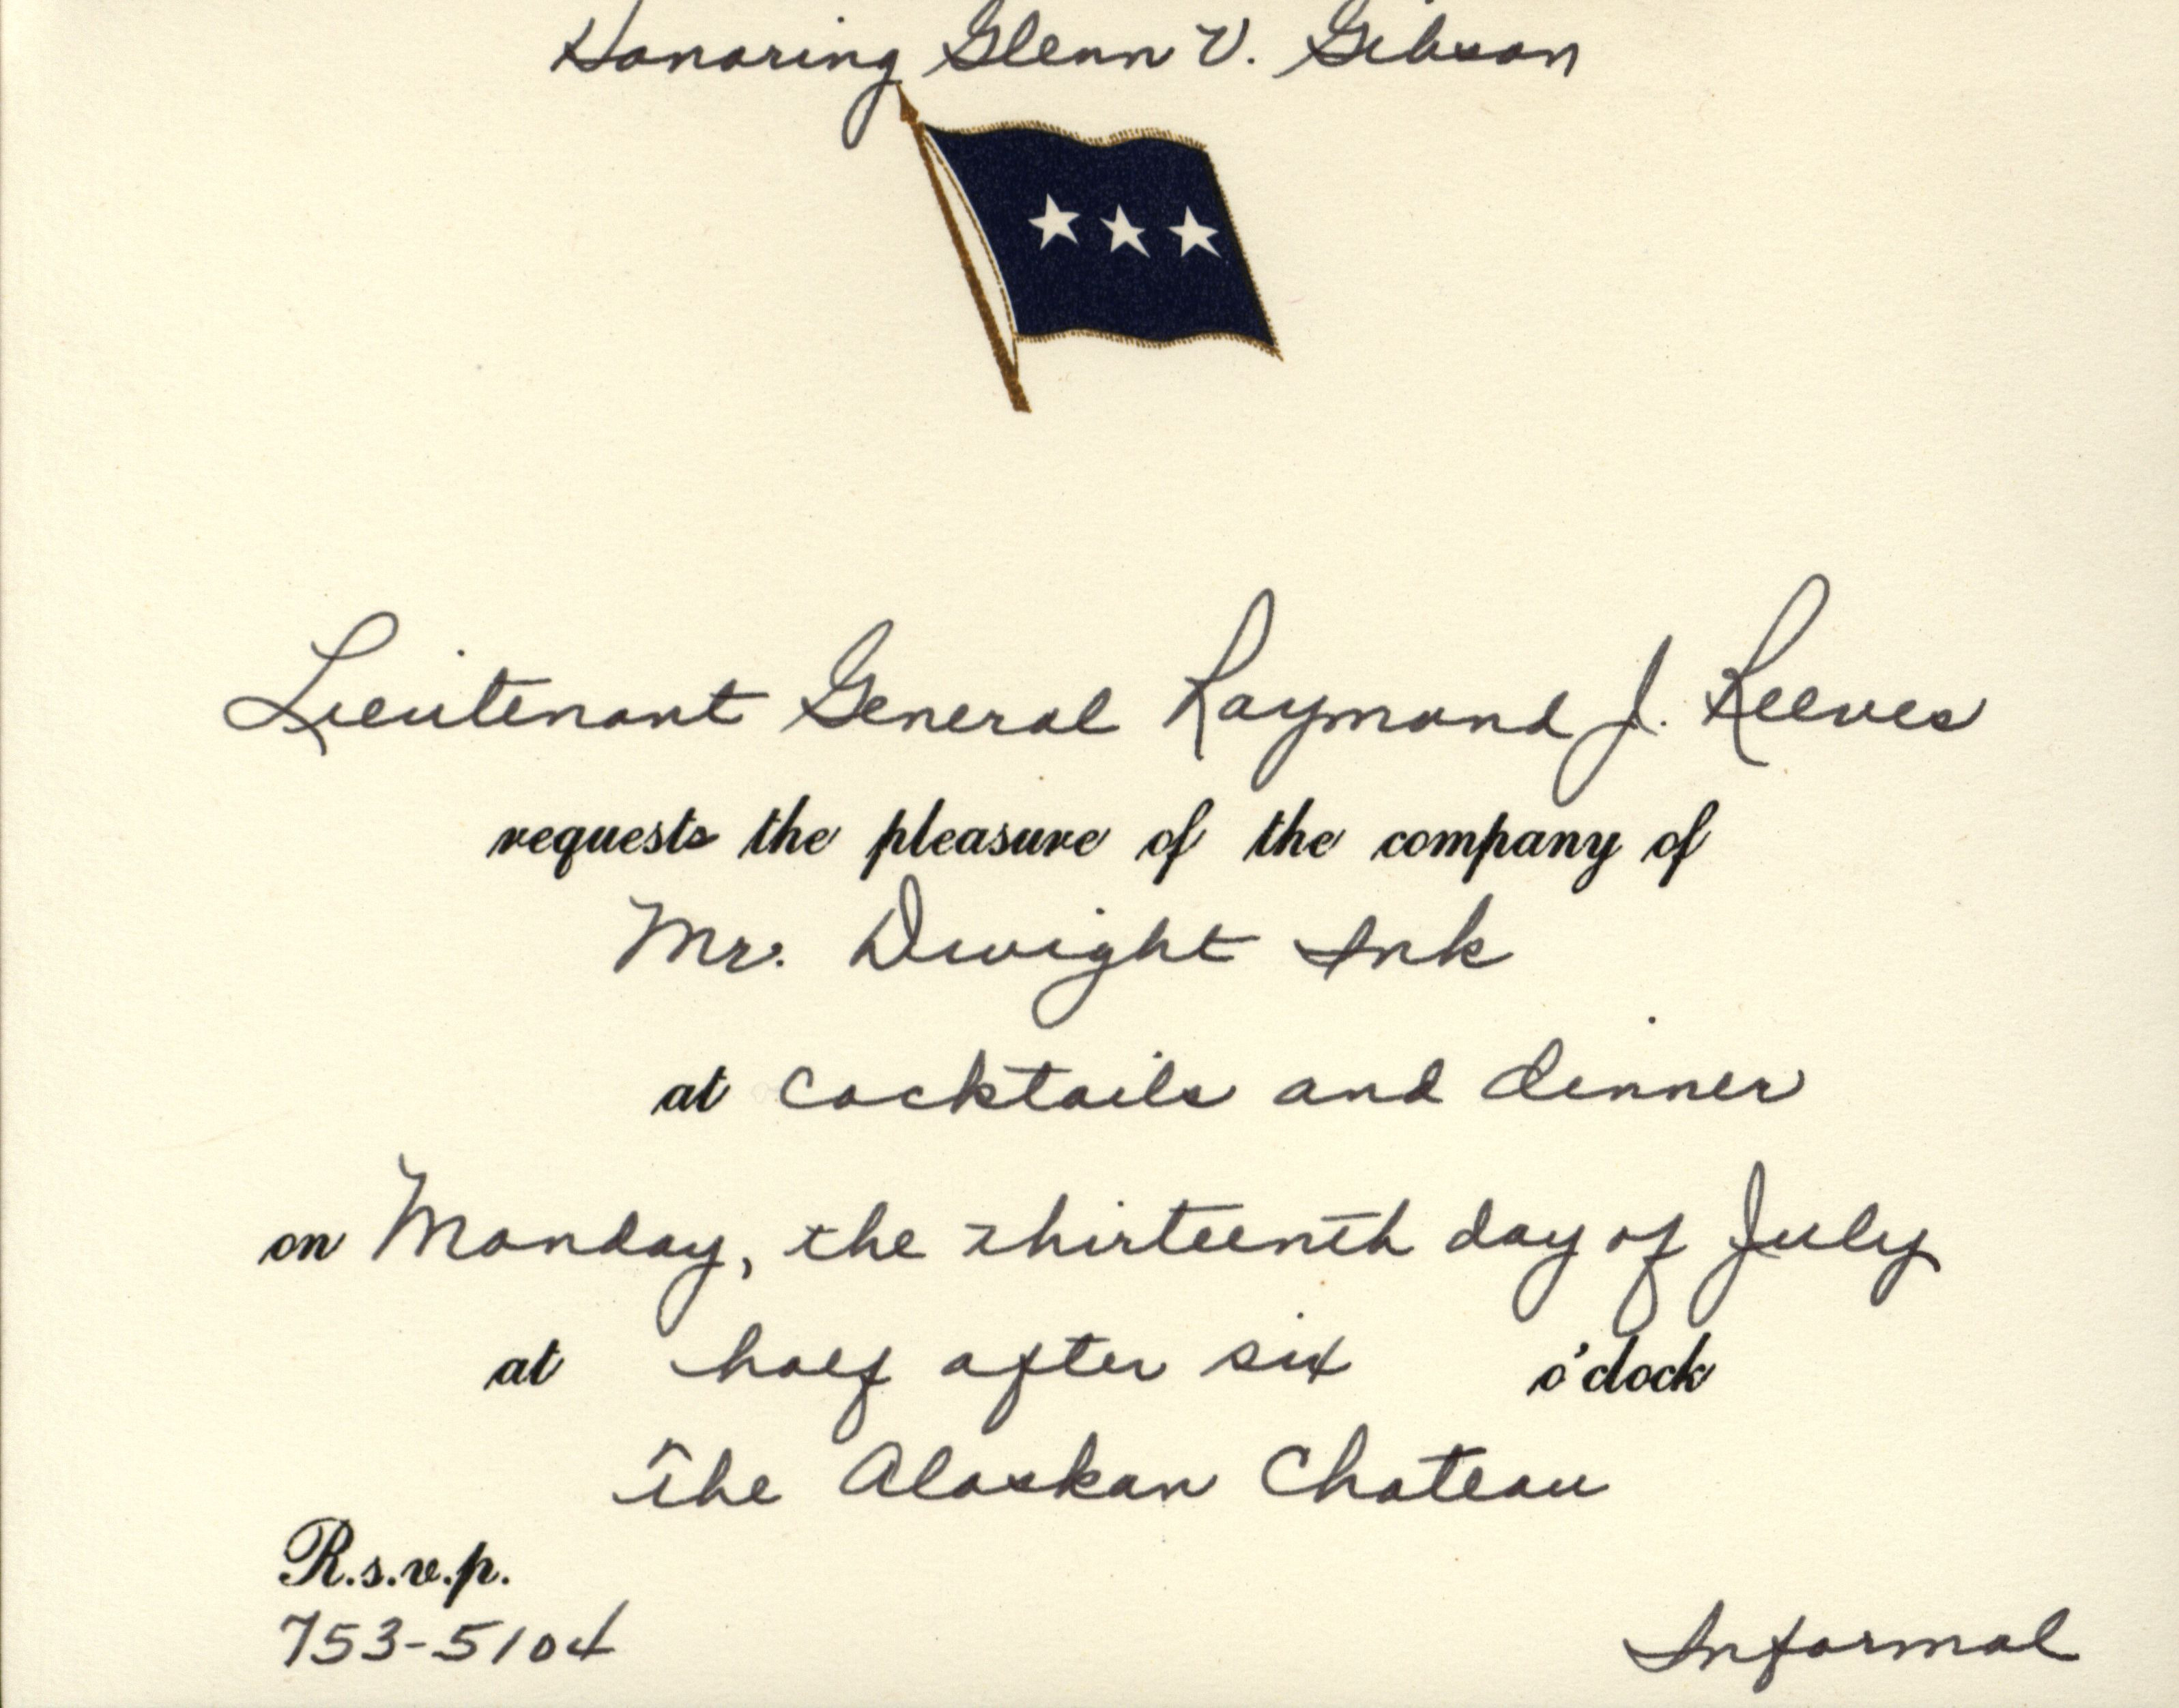 Honoring Glenn V. Gibson
Lieutenant General Raymond J. Reeves
requests the pleasure of the company of
Mr. Dwight Ink
at cocktails and dinner
on Monday, the thirteenth day of July
at half after six o'clock
The Alaskan Chateau
R.s.v.p.
753-5104
Informal